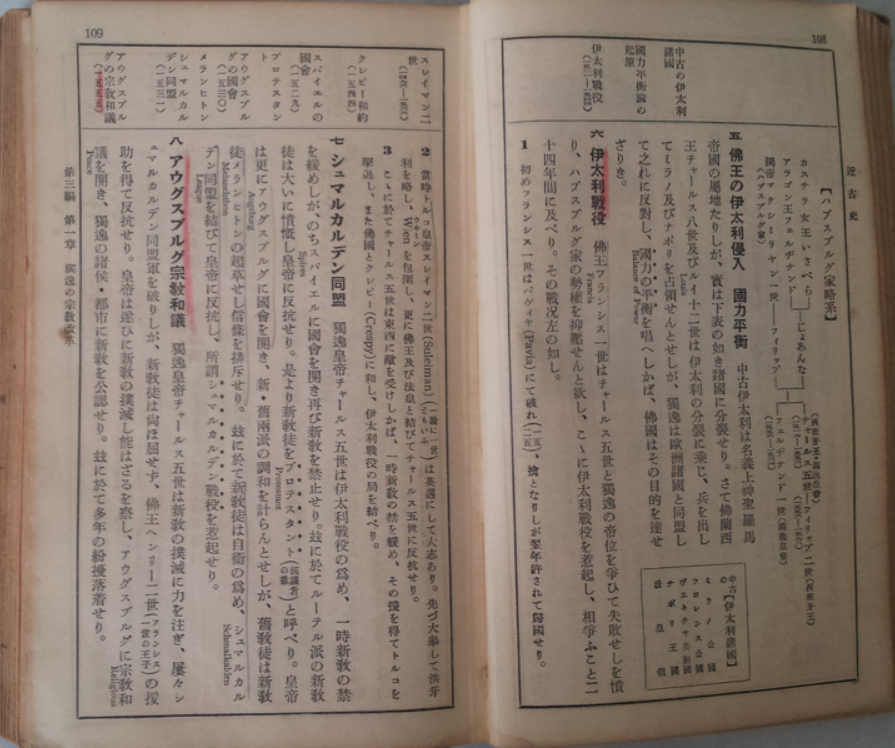 108
近古史
【ハプスブルグ家略系】
カスチラ女王いさべら
アラゴン王フェルヂナンド
じょあんな
獨帝マクシミリヤン一世
(ハプスブルグ家)
フィリップ
チャールス五世
フィリップ二世(西班牙王)
フェルヂナンド一世
中古の伊太利諸國
國力平衡論の起原
五 佛王の伊太利侵入 國力平衡 中古伊太利は名義上神聖羅馬
帝國の屬地たりしが、實は下表の如き諸國に分裂せり。さて佛蘭西
王チャールス八世及びルイ十二世は伊太利の分裂に乘じ、兵を出し
Louis
てミラノ及びナポリを占領せんとせしが、獨逸は歐洲諸國と同盟し
て之れに反對し、國力の平衡を唱へしかば、佛國はその目的を達せ
Balance of Power
ざりき。
中古の【伊太利諸國】
ミラノ公國
フロレンス公國
ヴェネチヤ共和國
ナポリ王國
法皇領
伊太利戰役
六 伊太利戰役 佛王フランシス一世はチャールス五世と獨逸の帝位を爭ひて失敗せしを憤
Francis
り、ハプスブルグ家の勢權を抑壓せんと欲し、こゝに伊太利戰役を惹起し、相爭ふこと二
十四年間に及べり。その戰況左の如し。
1 初めフランシス一世はパヴィヤ(Pavia)にて破れ、擒となりしが翌年許されて歸國せり。
109
スレイマン二世
2 當時トルコ皇帝スレイマン二世(Suleiman)は英邁にして大志あり。先づ大擧して洪牙
利を略し、Wienを包圍し、更に佛王及び法皇と結びてチャールス五世に反抗せり。
ウヰーン
クレピー和約
(一五四四)
3 こゝに於てチャールス五世は東西に敵を受けしかば、一時新教の禁を緩め、その援を得てトルコを
擊退し、また佛國とクレピー(Crespy)に和し、伊太利戰役の局を結べり。
七 シュマルカルデン同盟 獨逸皇帝チャールス五世は伊太利戰役の爲め、一時新教の禁
スパイエルの國會
(一五二九)
を緩めしが、のちスパイエルに國會を開き再び新教を禁止せり。玆に於てルーテル派の新教
Spires
プロテスタント
徒は大いに憤慨し皇帝に反抗せり。是より新教徒をプロテスタント(抗議者の意)と呼べり。皇帝
Protestant
アウグスブルグの國會
(一五三〇)
は更にアウグスブルグに國會を開き、新・舊兩派の調和を計らんとせしが、舊教徒は新教
Augsburg
メランヒトン
徒メランヒトンの起草せし信條を排斥せり。玆に於て新教徒は自衞の爲め、シュマルカル
Melanchthon
Schmalkalden
シュマルカルデン同盟
(一五三一)
デン同盟を結びて皇帝に反抗し、所謂シュマルカルデン戰役を惹起せり。
League
アウグスブルグの宗教和議
(一五五五)
八 アウグスブルグ宗教和議 獨逸皇帝チャールス五世は新教の撲滅に力を注ぎ、屢々シ
ュマルカルデン同盟軍を破りしが、新教徒は尙ほ屈せず、佛王ヘンリー二世(フランシス一世の王子)の援
助を得て反抗せり。皇帝は遂ひに新教の撲滅し能はざるを察し、アウグスブルグに宗教和
Religious
議を開き、獨逸の諸侯・都市に新教を公認せり。玆に於て多年の紛擾落着せり。
Peace
第三編 第一章 獨逸の宗教改革